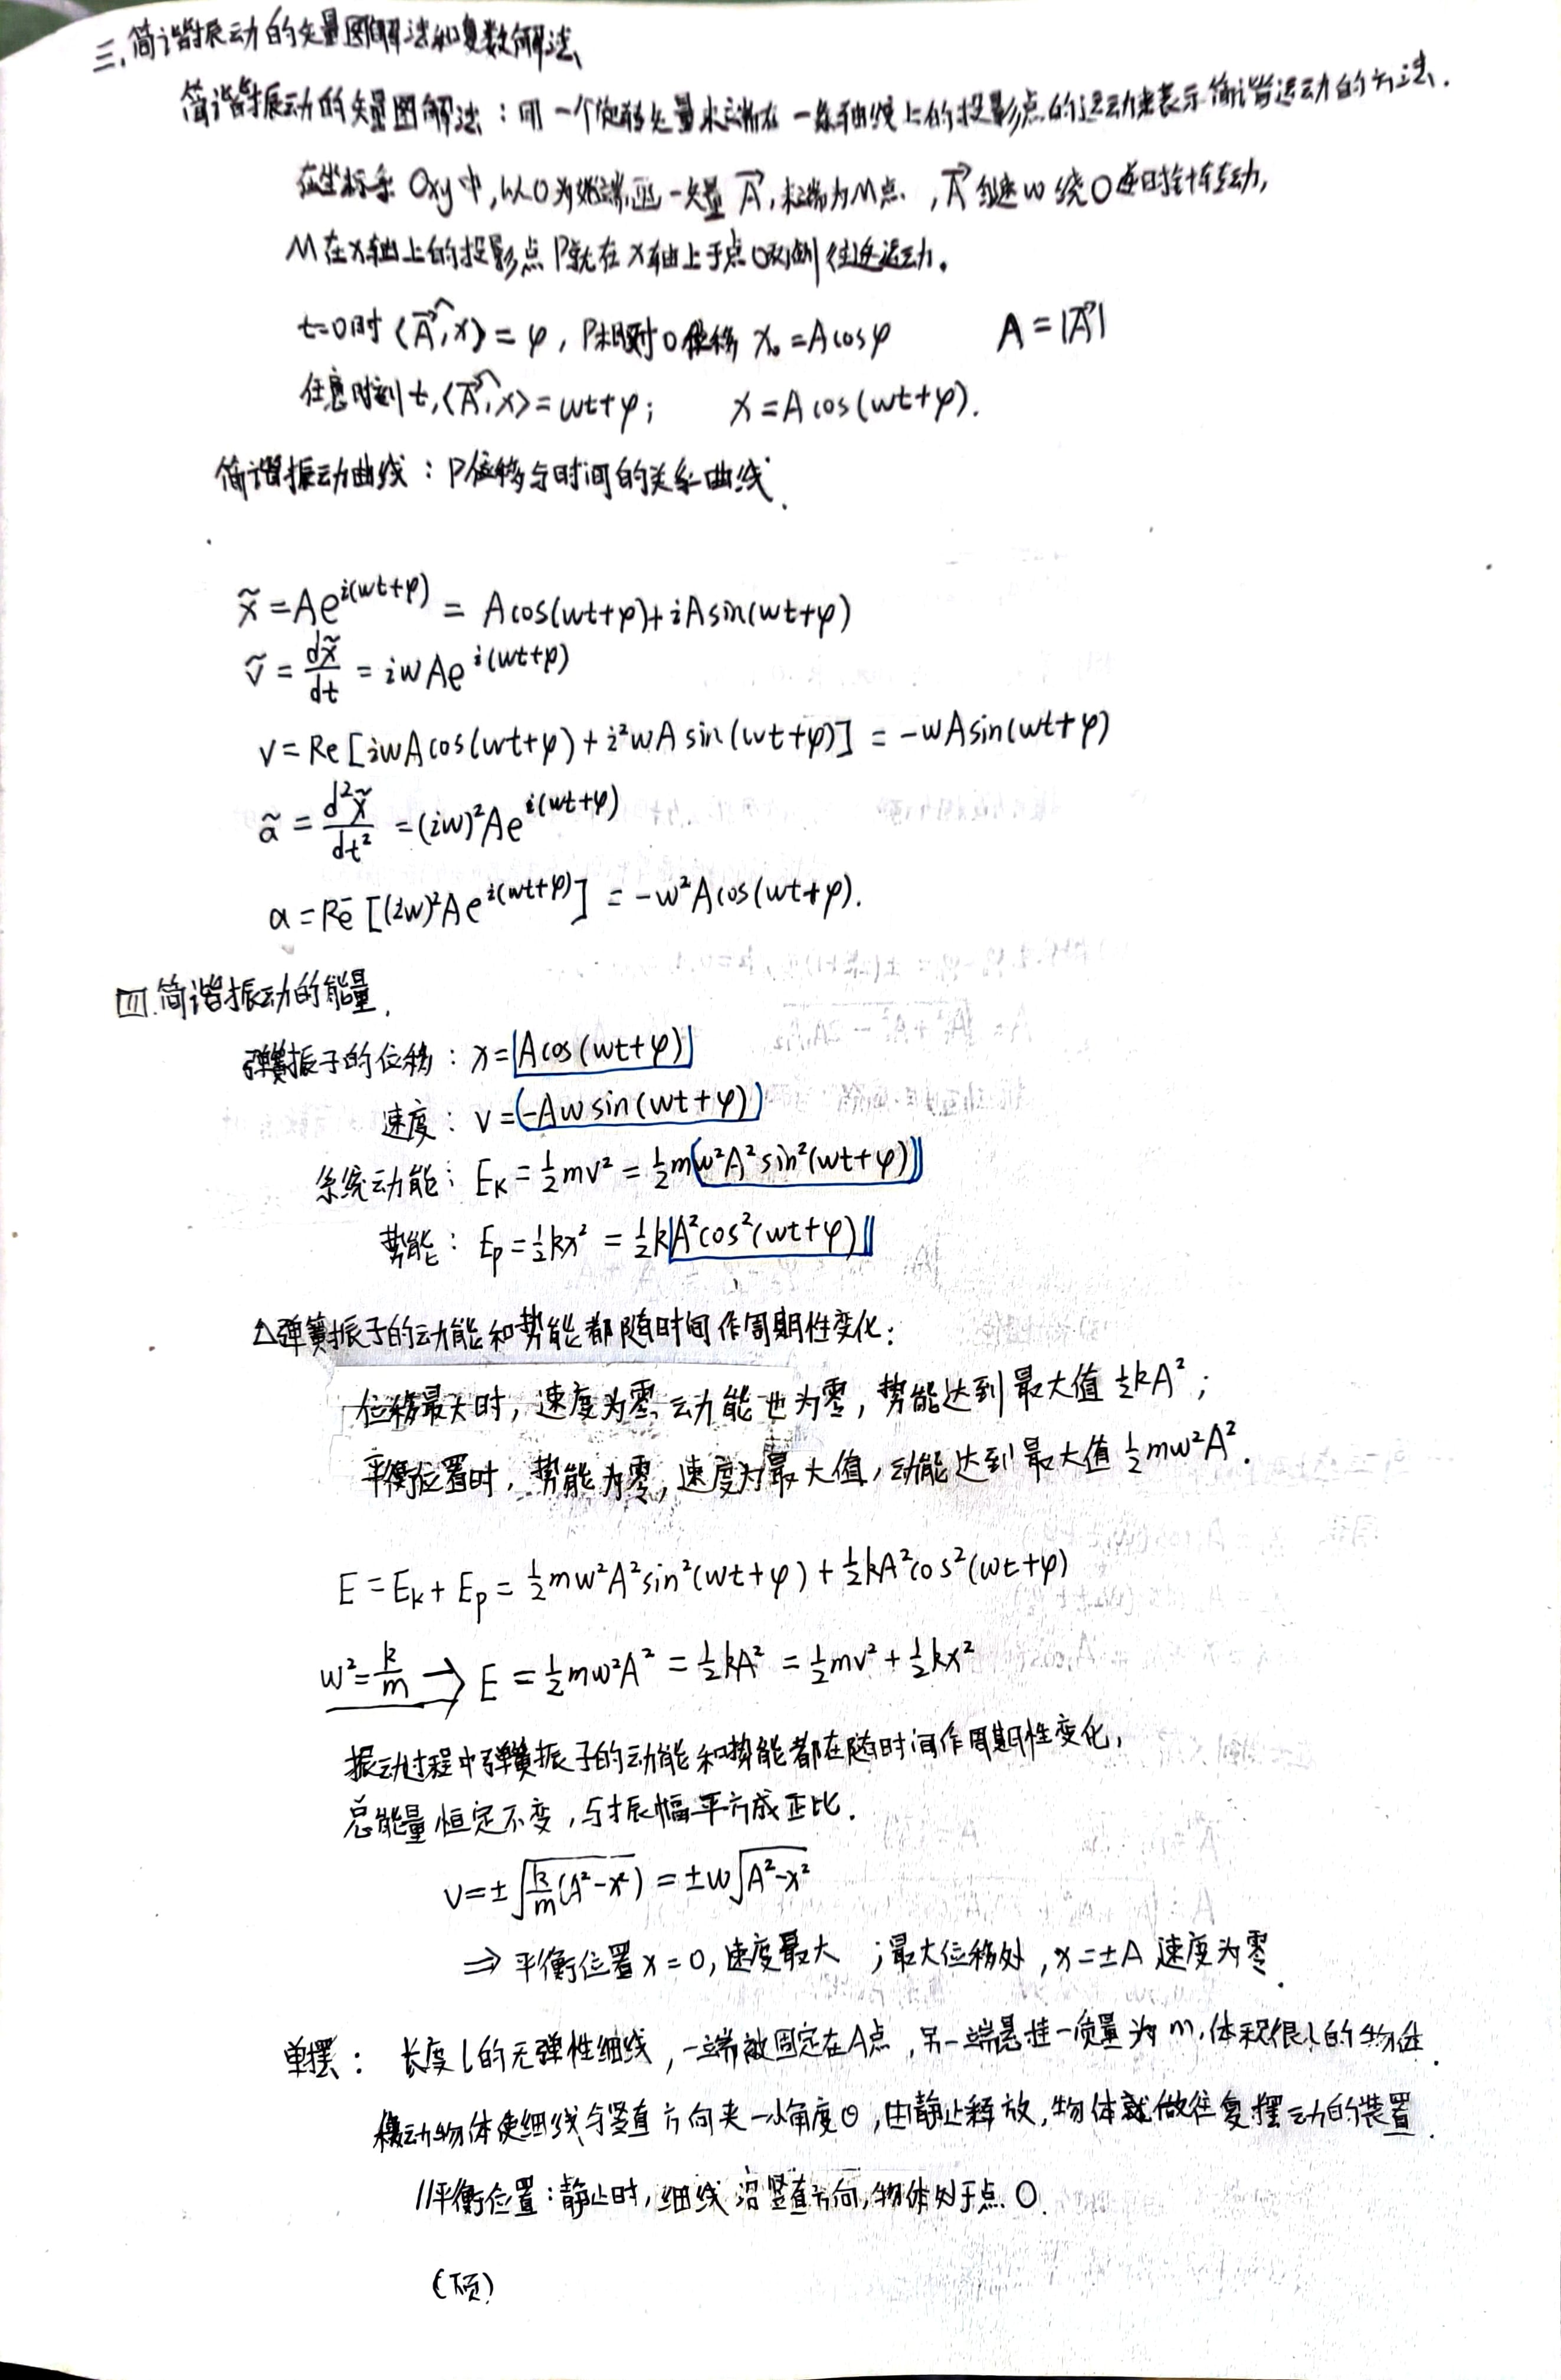 三.简谐振动的矢量图解法和复数解法
简谐振动的矢量图解法：用一个旋转矢量末端在一条轴线上的投影点的运动来表示简谐运动的方法.
在坐标系Oxy中,以O为始端画一矢量A⃗,末端为M点.,A⃗以角速ω绕O逆时针转动,
M在x轴上的投影点P就在x轴上于点O两侧往返运动.
t=0时⟨A⃗,x⟩=φ, P相对O位移 x₀=Acosφ A=|A⃗|
任意时刻t,⟨A⃗,x⟩=ωt+φ; x=Acos(ωt+φ).
简谐振动曲线：P位移与时间的关系曲线.
x̃=Ae^{i(ωt+φ)} = Acos(ωt+φ)+iAsin(ωt+φ)
ṽ=dx̃/dt=iωAe^{i(ωt+φ)}
v=Re[iωAcos(ωt+φ)+i²ωAsin(ωt+φ)]=-ωAsin(ωt+φ)
ã=d²x̃/dt²=(iω)²Ae^{i(ωt+φ)}
a=Re[(iω)²Ae^{i(ωt+φ)}]=-ω²Acos(ωt+φ).
四.简谐振动的能量.
弹簧振子的位移：x=Acos(ωt+φ)
速度：v=(-Aωsin(ωt+φ))
系统动能：E_K=½mv²=½m(ω²A²sin²(ωt+φ))
势能：E_p=½kx²=½kA²cos²(ωt+φ)
△弹簧振子的动能和势能都随时间作周期性变化：
位移最大时,速度为零,动能也为零,势能达到最大值½kA²;
平衡位置时,势能为零,速度为最大值,动能达到最大值½mω²A².
E=E_k+E_p=½mω²A²sin²(ωt+φ)+½kA²cos²(ωt+φ)
ω²=k/m → E=½mω²A²=½kA²=½mv²+½kx²
振动过程中弹簧振子的动能和势能都在随时间作周期性变化,
总能量恒定不变,与振幅平方成正比.
v=±√(k/m(A²-x²))=±ω√(A²-x²)
⇒平衡位置x=0,速度最大;最大位移处,x=±A速度为零.
单摆：长度l的无弹性细线,一端被固定在A点,另一端悬挂一质量为m,体积很小的物体.
移动物体使细线与竖直方向夹一小角度θ,由静止释放,物体就做往复摆动的装置.
//平衡位置：静止时,细线沿竖直方向,物体处于点O.
(下页)